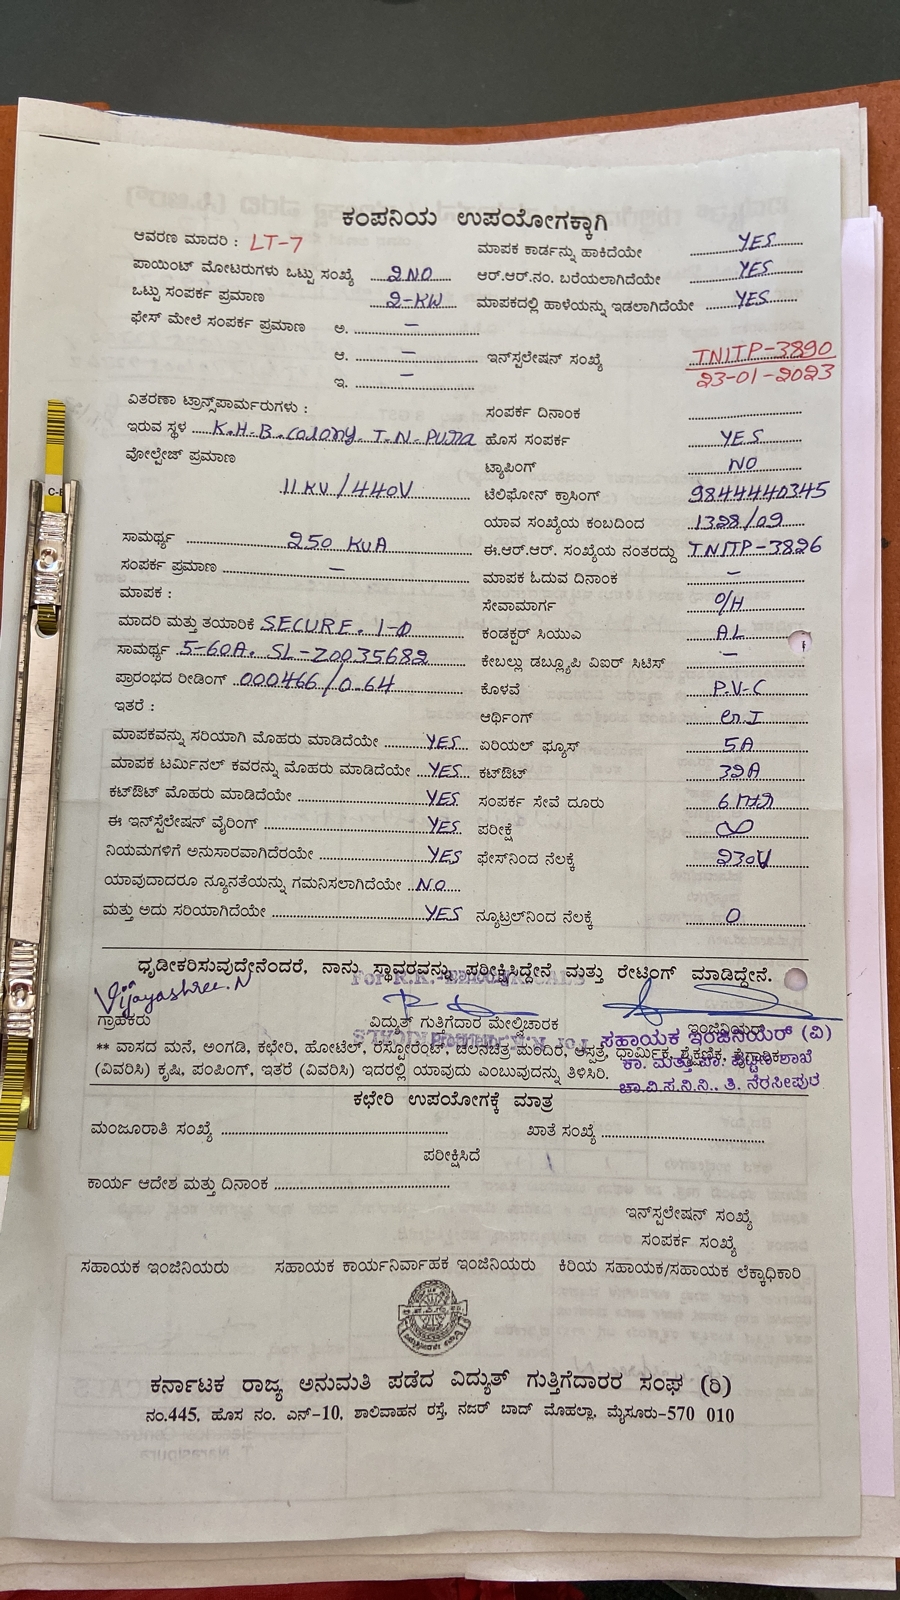 ಕಂಪನಿಯ ಉಪಯೋಗಕ್ಕಾಗಿ
ಆವರಣ ಮಾದರಿ : LT-7 ಮಾಪಕ ಕಾರ್ಡನ್ನು ಹಾಕಿದೆಯೇ YES
ಪಾಯಿಂಟ್ ಮೋಟರುಗಳು ಒಟ್ಟು ಸಂಖ್ಯೆ 2NO ಆರ್.ಆರ್.ನಂ. ಬರೆಯಲಾಗಿದೆಯೇ YES
ಒಟ್ಟು ಸಂಪರ್ಕ ಪ್ರಮಾಣ 2-KW ಮಾಪಕದಲ್ಲಿ ಹಾಳೆಯನ್ನು ಇಡಲಾಗಿದೆಯೇ YES
ಫೇಸ್ ಮೇಲೆ ಸಂಪರ್ಕ ಪ್ರಮಾಣ ಅ. –
ಆ. – ಇನ್‌ಸ್ಪಲೇಷನ್ ಸಂಖ್ಯೆ TNITP-3890
ಇ. – 23-01-2023
ವಿತರಣಾ ಟ್ರಾನ್ಸ್‌ಪಾರ್ಮರುಗಳು : ಸಂಪರ್ಕ ದಿನಾಂಕ
ಇರುವ ಸ್ಥಳ K.H.B. Colony. T.N. Pura ಹೊಸ ಸಂಪರ್ಕ YES
ವೋಲ್ಟೇಜ್ ಪ್ರಮಾಣ ಟ್ಯಾಪಿಂಗ್ NO
11 KV/440V ಟೆಲಿಫೋನ್ ಕ್ರಾಸಿಂಗ್ 9844440345
ಯಾವ ಸಂಖ್ಯೆಯ ಕಂಬದಿಂದ 1328/09
ಸಾಮರ್ಥ್ಯ 250 KVA ಈ.ಆರ್.ಆರ್. ಸಂಖ್ಯೆಯ ನಂತರದ್ದು TNITP-3826
ಸಂಪರ್ಕ ಪ್ರಮಾಣ – ಮಾಪಕ ಓದುವ ದಿನಾಂಕ –
ಮಾಪಕ : ಸೇವಾಮಾರ್ಗ O/H
ಮಾದರಿ ಮತ್ತು ತಯಾರಿಕೆ SECURE. 1-Φ ಕಂಡಕ್ಟರ್ ಸಿಯುಎ AL
ಸಾಮರ್ಥ್ಯ 5-60A. SL-Z0035682 ಕೇಬಲ್ಲು ಡಬ್ಲ್ಯೂಪಿ ವಿಐರ್ ಸಿಟಿಸ್ –
ಪ್ರಾರಂಭದ ರೀಡಿಂಗ್ 000466/0.64 ಕೊಳವೆ P.V-C
ಇತರೆ : ಆರ್ಥಿಂಗ್ G.I
ಮಾಪಕವನ್ನು ಸರಿಯಾಗಿ ಮೊಹರು ಮಾಡಿದೆಯೇ YES ಏರಿಯಲ್ ಫ್ಯೂಸ್ 5A
ಮಾಪಕ ಟರ್ಮಿನಲ್ ಕವರನ್ನು ಮೊಹರು ಮಾಡಿದೆಯೇ YES ಕಟ್‌ಔಟ್ 32A
ಕಟ್‌ಔಟ್ ಮೊಹರು ಮಾಡಿದೆಯೇ YES ಸಂಪರ್ಕ ಸೇವೆ ದೂರು
ಈ ಇನ್‌ಸ್ಟೆಲೇಷನ್ ವೈರಿಂಗ್ YES ಪರೀಕ್ಷೆ ∞
ನಿಯಮಗಳಿಗೆ ಅನುಸಾರವಾಗಿದೆರಯೇ YES ಫೇಸ್‌ನಿಂದ ನೆಲಕ್ಕೆ 230V
ಯಾವುದಾದರೂ ನ್ಯೂನತೆಯನ್ನು ಗಮನಿಸಲಾಗಿದೆಯೇ NO
ಮತ್ತು ಅದು ಸರಿಯಾಗಿದೆಯೇ YES ನ್ಯೂಟ್ರಲ್‌ನಿಂದ ನೆಲಕ್ಕೆ 0
ಧೃಡೀಕರಿಸುವುದೇನೆಂದರೆ, ನಾನು ಸ್ಥಾವರವನ್ನು ಪರೀಕ್ಷಿಸಿದ್ದೇನೆ ಮತ್ತು ರೇಟಿಂಗ್ ಮಾಡಿದ್ದೇನೆ.
Vijayashree.N
ಗ್ರಾಹಕರು ವಿದ್ಯುತ್ ಗುತ್ತಿಗೆದಾರ ಮೇಲ್ವಿಚಾರಕ ಇಂಜಿನಿಯರ್
ಸಹಾಯಕ ಇಂಜಿನಿಯರ್ (ವಿ)
** ವಾಸದ ಮನೆ, ಅಂಗಡಿ, ಕಛೇರಿ, ಹೋಟೆಲ್, ರೆಸ್ಟೋರೆಂಟ್, ಚಲನಚಿತ್ರ ಮಂದಿರ, ಆಸ್ಪತ್ರೆ, ಧಾರ್ಮಿಕ, ಶೈಕ್ಷಣಿಕ, ಕೈಗಾರಿಕಾ
(ವಿವರಿಸಿ) ಕೃಷಿ, ಪಂಪಿಂಗ್, ಇತರೆ (ವಿವರಿಸಿ) ಇದರಲ್ಲಿ ಯಾವುದು ಎಂಬುವುದನ್ನು ತಿಳಿಸಿರಿ.
ಚಾ.ವಿ.ಸ.ನಿ.ನಿ., ತಿ. ನರಸೀಪುರ
ಕಛೇರಿ ಉಪಯೋಗಕ್ಕೆ ಮಾತ್ರ
ಮಂಜೂರಾತಿ ಸಂಖ್ಯೆ ಖಾತೆ ಸಂಖ್ಯೆ
ಪರೀಕ್ಷಿಸಿದೆ
ಕಾರ್ಯ ಆದೇಶ ಮತ್ತು ದಿನಾಂಕ
ಇನ್‌ಸ್ಪಲೇಷನ್ ಸಂಖ್ಯೆ
ಸಂಪರ್ಕ ಸಂಖ್ಯೆ
ಸಹಾಯಕ ಇಂಜಿನಿಯರು ಸಹಾಯಕ ಕಾರ್ಯನಿರ್ವಾಹಕ ಇಂಜಿನಿಯರು ಕಿರಿಯ ಸಹಾಯಕ/ಸಹಾಯಕ ಲೆಕ್ಕಾಧಿಕಾರಿ
ಕರ್ನಾಟಕ ರಾಜ್ಯ ಅನುಮತಿ ಪಡೆದ ವಿದ್ಯುತ್ ಗುತ್ತಿಗೆದಾರರ ಸಂಘ (ರಿ)
ನಂ.445, ಹೊಸ ನಂ. ಎನ್-10, ಶಾಲಿವಾಹನ ರಸ್ತೆ, ನಜರ್ ಬಾದ್ ಮೊಹಲ್ಲಾ, ಮೈಸೂರು-570 010